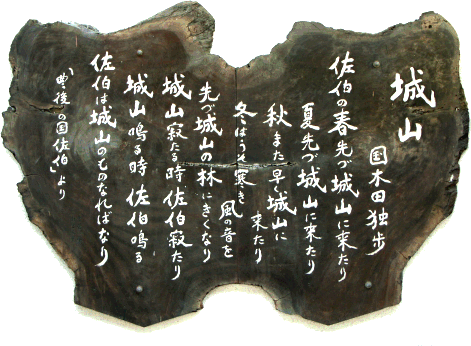 城山
国木田独歩
佐伯の春先づ城山に来たり
夏先づ城山に来たり
秋また早く城山に
来たり
冬はうそ寒き
風の音を
先づ城山の林にきくなり
城山寂たる時佐伯寂たり
城山鳴る時 佐伯鳴る
佐伯は城山のものなればなり
「豊後の国佐伯」より